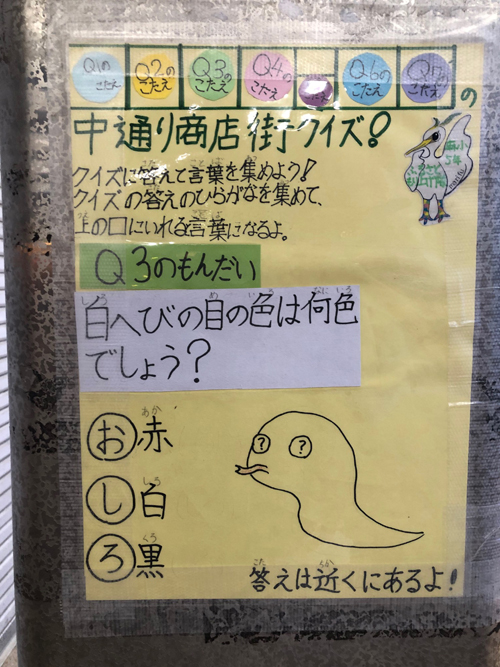 Q1のこたえ Q2のこたえ Q3のこたえ Q4のこたえ こたえ Q6のこたえ Q5のこたえ の
中通り商店街クイズ!
クイズに答えて言葉を集めよう!
クイズの答えのひらがなを集めて、
上の口にいれる言葉になるよ。
南小
5年
ふるさと
Q3のもんだい
白へびの目の色は何色
でしょう?
お 赤
し 白
ろ 黒
? ?
答えは近くにあるよ!